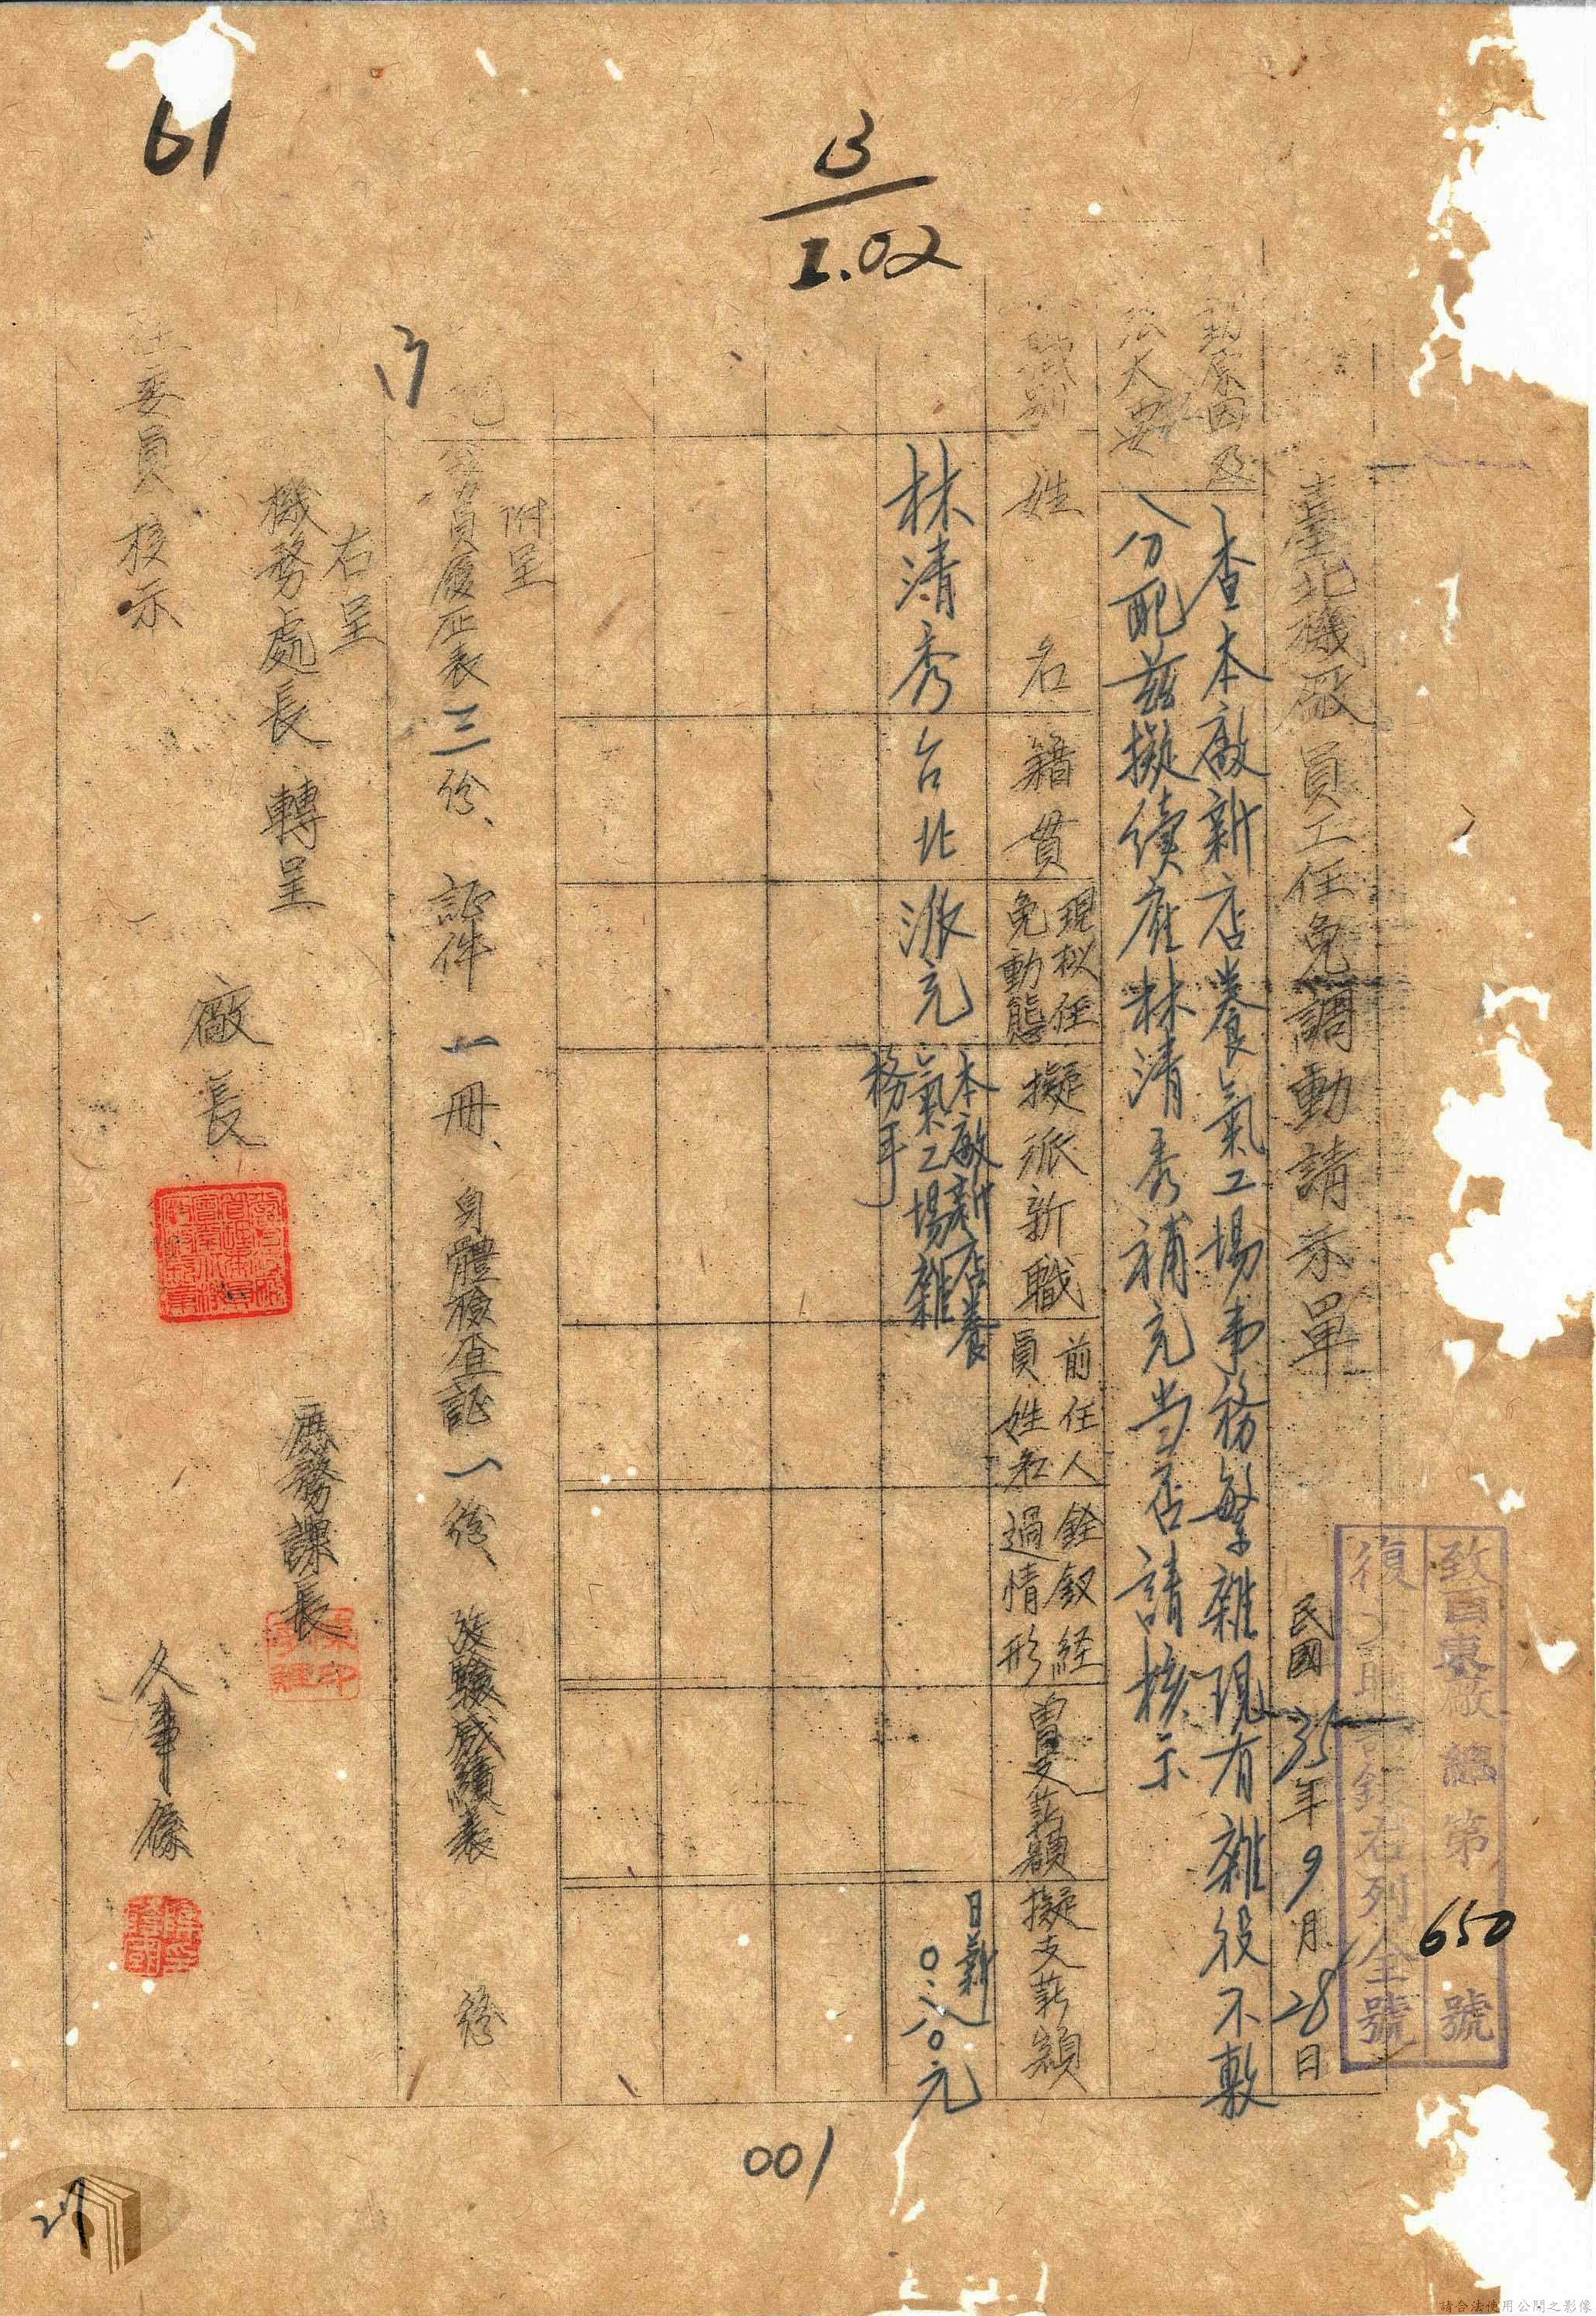 61
13
1.02
致酉東廠總第650號
復時請銀右列全號
臺北機廠員工任免調動請示單
民國35年9月28日
動原因及
法大要
查本廠新店養氣工場事務繁雜現有雜役不敷
分配茲擬續雇林清秀補充当否請核示
職別
姓名
籍貫
現拟任
免動態
擬派新職
前任人
員姓名
銓敘経
過情形
曽支薪額
擬支薪額
林清秀
台北
派充
本廠新店養
氣工場雜
務手
日薪
〇.八〇元
附呈
員履歷表三份、証件一冊、身體檢查証一份、攷驗成績表 份
13
右呈
機務處長 轉呈
委員核示
廠長
廠務課長
人事係
001
27
請合法使用公開之影像